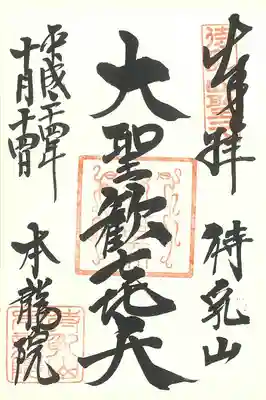 奉拝
待乳山
大聖歓喜天
平成二十四年
十月十四日
本龍院